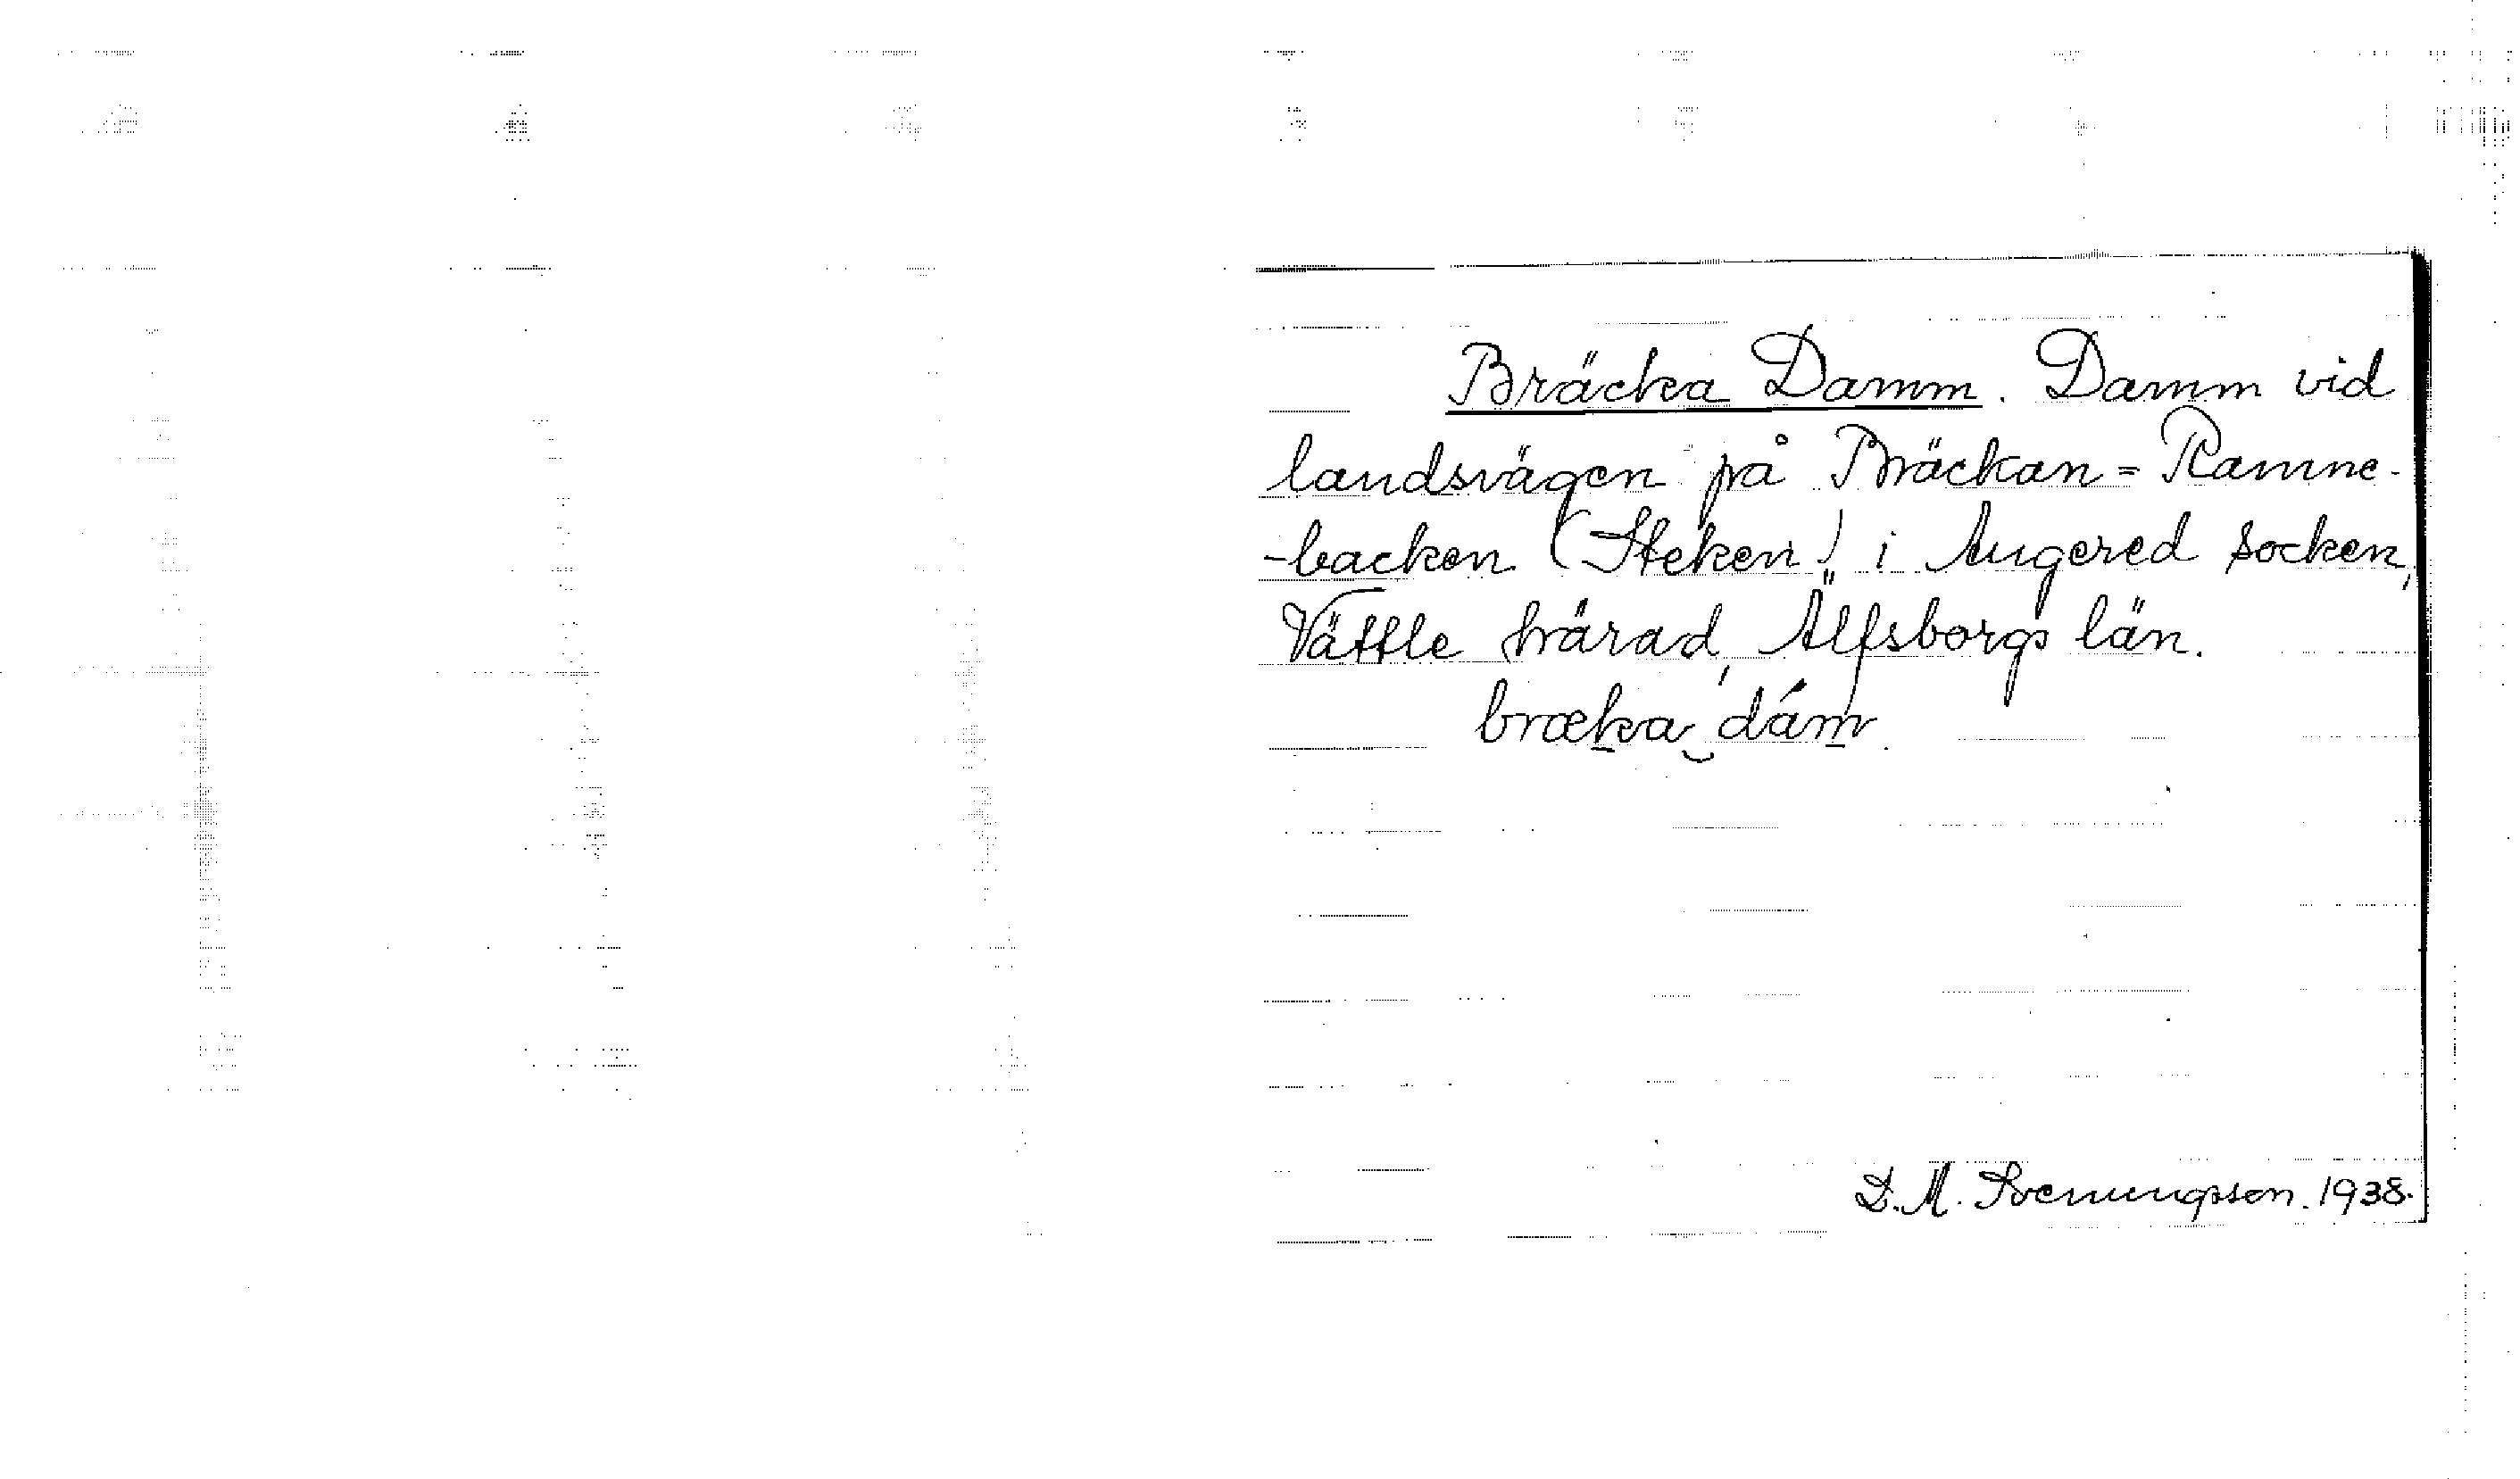 Bräcka Damm. Damm vid
landsvägen på Bräckan = Ramne-
-backen (Steken) i Angered socken,
Vättle härad, Älfsborgs län.
bræka dám.
D. M. Svenungsson. 1938.